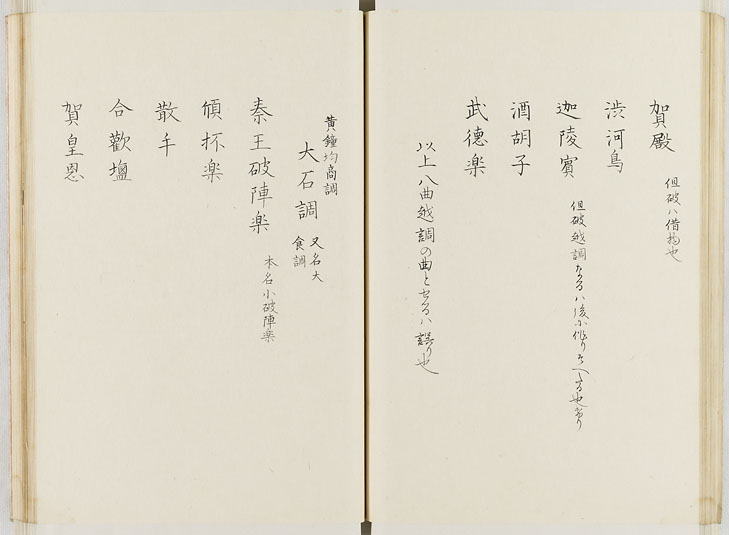 賀殿
但破ハ借物也
渋河鳥
迦陵賓
但破越調なるハ後小作りそへたる也
酒胡子
武徳楽
以上八曲越調の曲とセるハ誤り也
黄鐘均商調
大石調
又名大
食調
秦王破陣楽
本名小破陣楽
傾抔楽
散手
合歡塩
賀皇恩